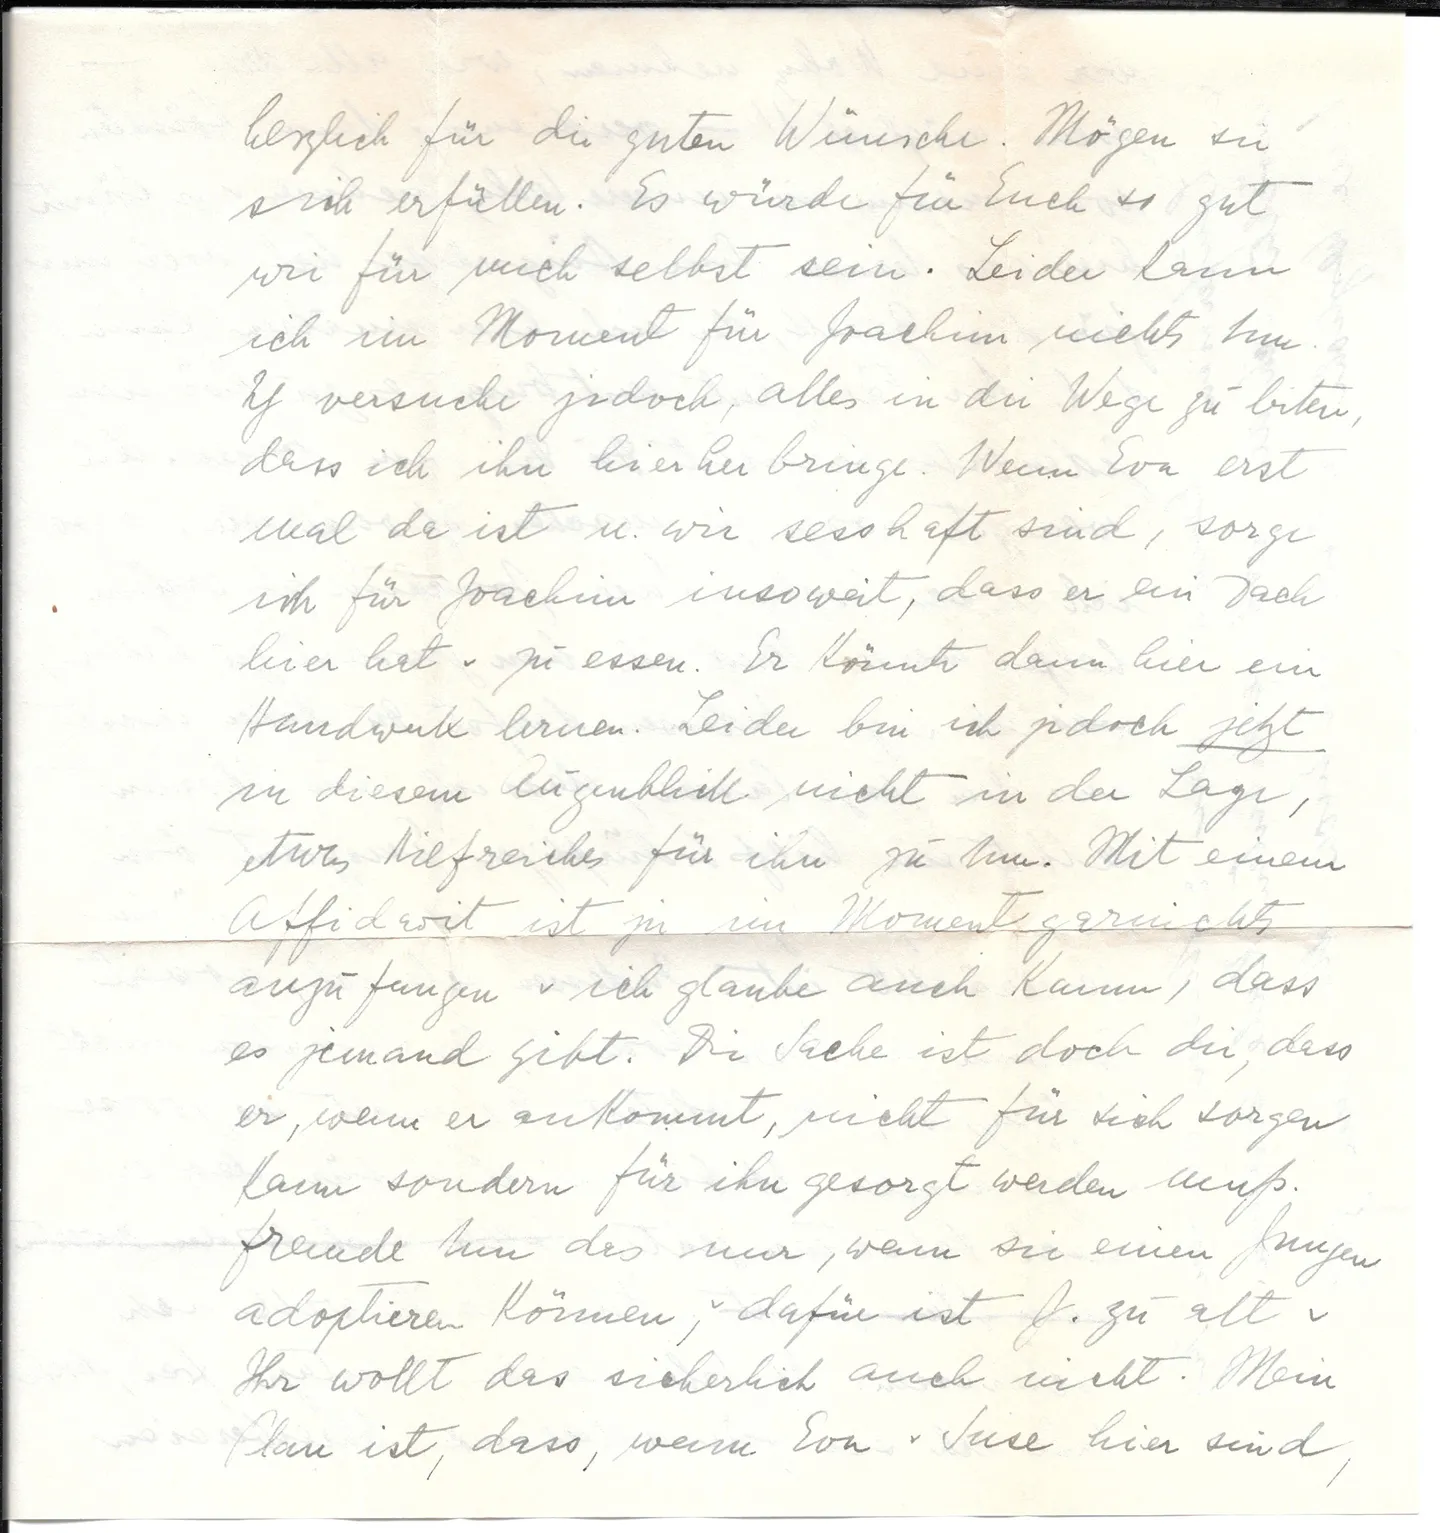 herzlich für die guten Wünsche. Mögen sie
sich erfüllen. Es würde für Euch so gut
wie für mich selbst sein. Leider kann
ich im Moment für Joachim nichts tun.
Ich versuche jedoch, alles in die Wege zu leiten,
dass ich ihn hierher bringe. Wenn Eva erst
mal da ist u. wir sesshaft sind, sorge
ich für Joachim insoweit, dass er ein Dach
hier hat u zu essen. Er könnte dann hier ein
Handwerk lernen. Leider bin ich jedoch jetzt
in diesem Augenblick nicht in der Lage,
etwas Hilfreiches für ihn zu tun. Mit einem
Affidavit ist ja im Moment garnichts
anzufangen u ich glaube auch kaum, dass
es jemand gibt. Die Sache ist doch die, dass
er, wenn er ankommt, nicht für sich sorgen
kann sondern für ihn gesorgt werden muß.
Fremde tun das nur, wenn sie einen Jungen
adoptieren können, u dafür ist J. zu alt u
Ihr wollt das sicherlich auch nicht. Mein
Plan ist, dass, wenn Eva u Suse hier sind,